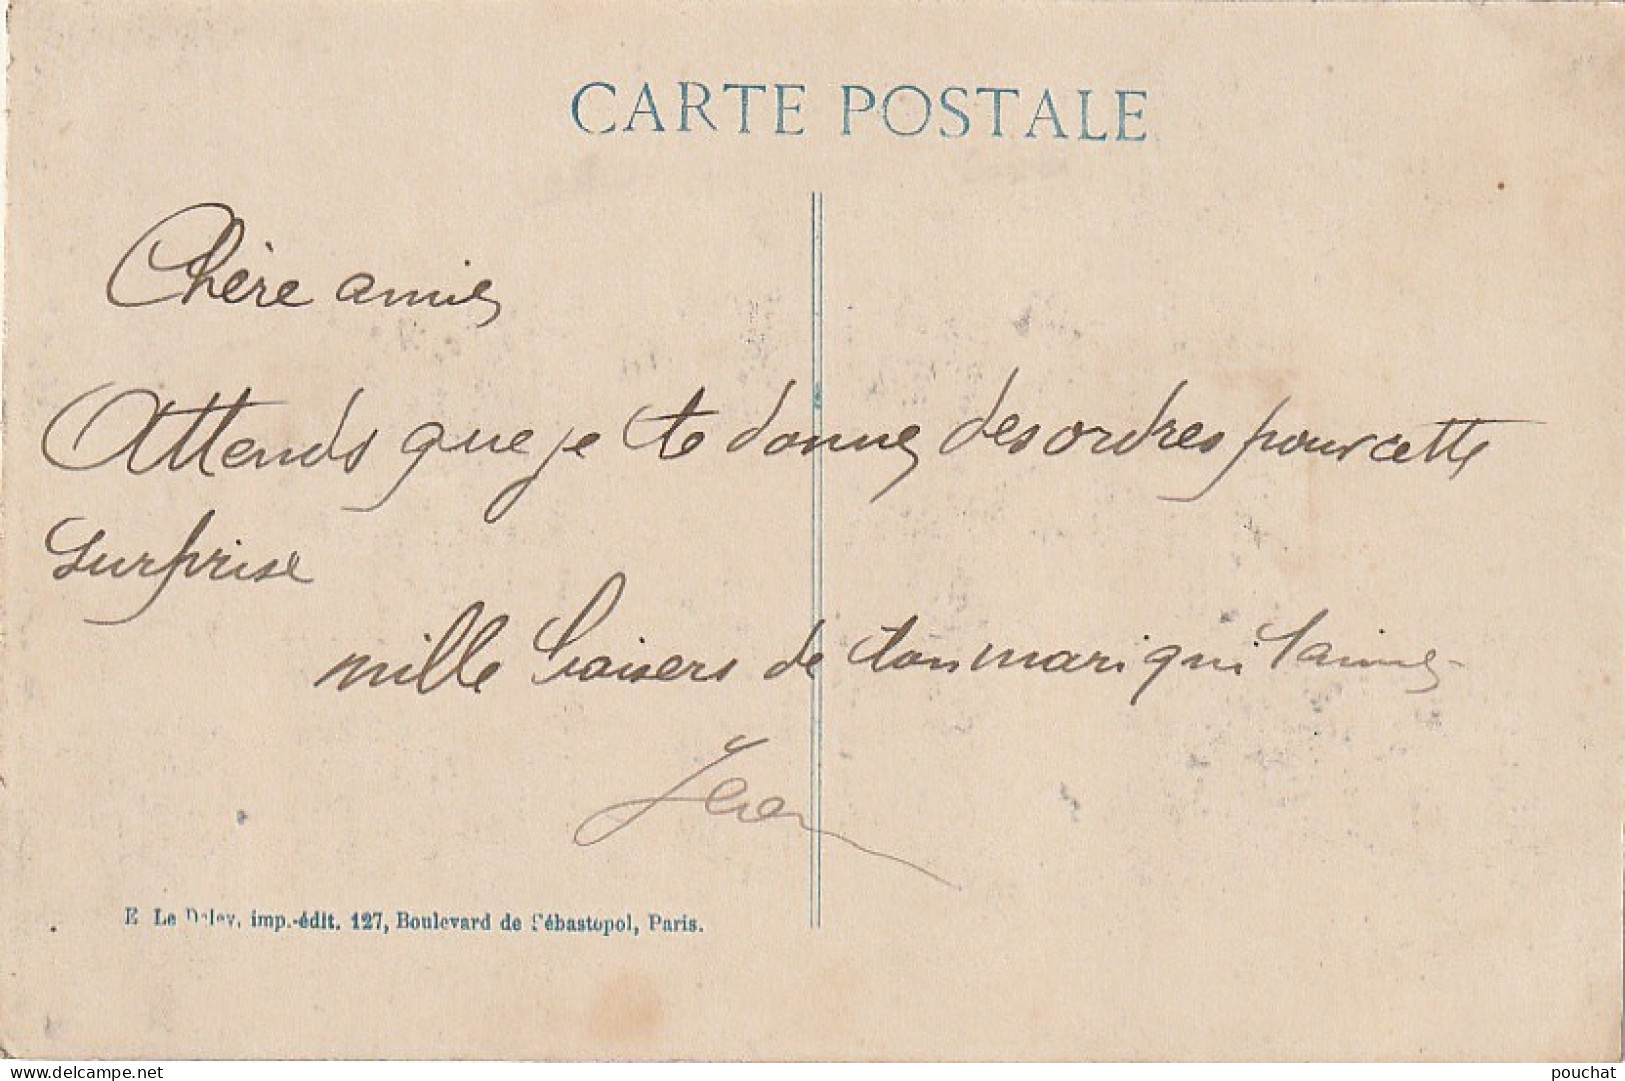 CARTE POSTALE
Chère amie
Attends que je te donne des ordres pour cette
surprise
mille baisers de ton mari qui t'aime
Jean
E Le Deley, imp.-édit. 127, Boulevard de Sébastopol, Paris.
www.delcampe.net
pouchat